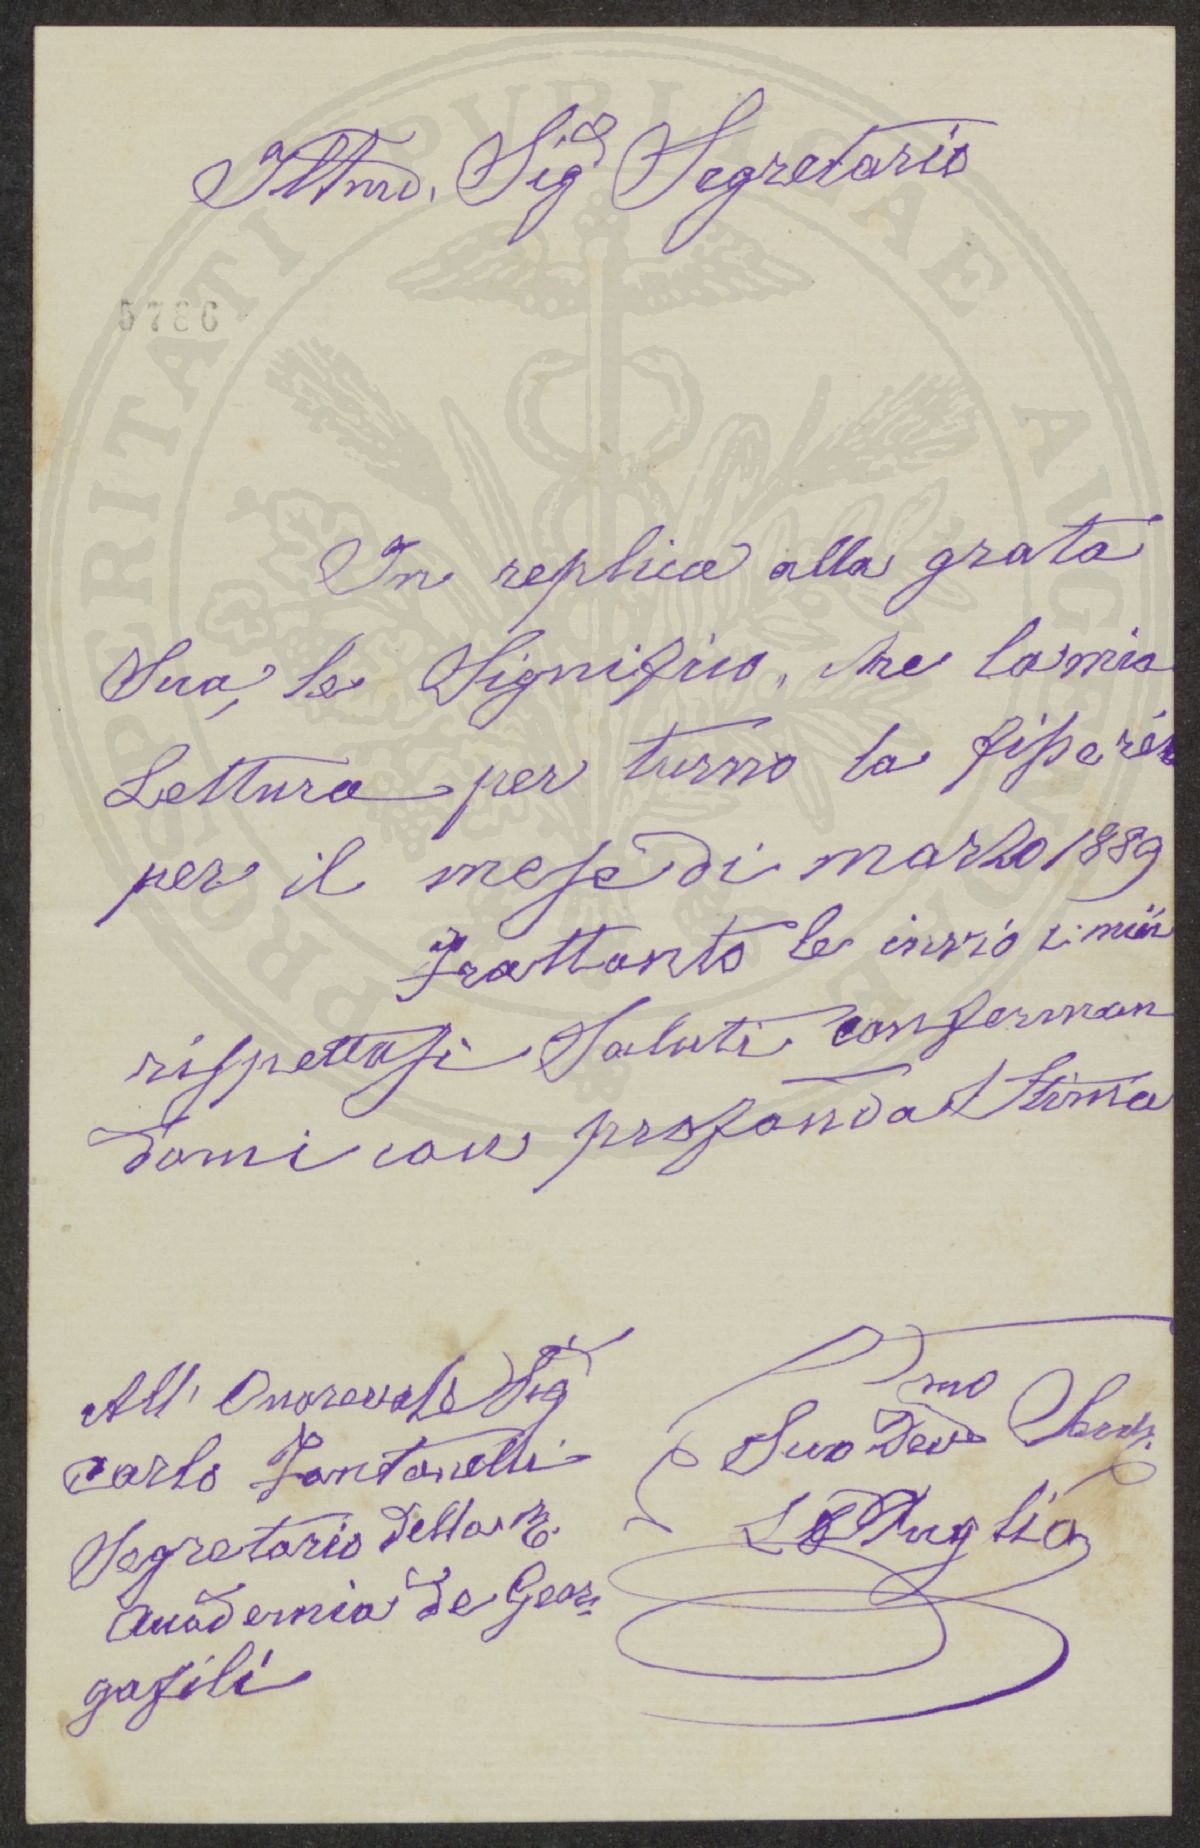 Illmo. Sigr Segretario
5786
In replica alla grata
Sua, le Significo, che la mia
Lettura per turno la fisserei
per il mese di marzo 1889
Frattanto le invio i miei
rispettosi Saluti conferman
domi con profonda Stima
All' Onorevole Sigr
Carlo Fontanelli
Segretario della R.
Accademia de Geor=
gofili
Suo Devmo Servr.
Puglia
PROSPERITATI PUBLICAE AUGENDAE